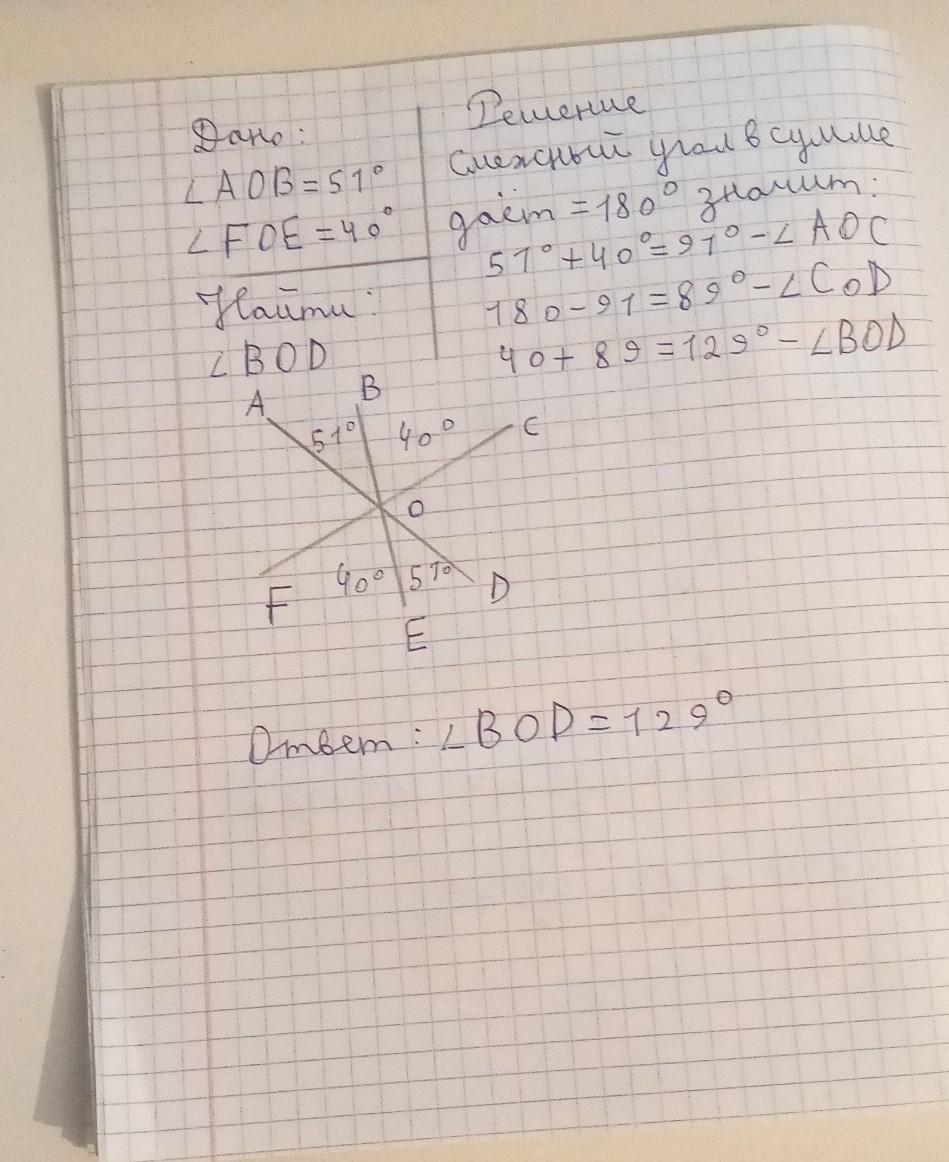 Дано:
∠AOB=51°
∠FOE=40°
Найти:
∠BOD
Решение
Смежный угол в сумме
даёт =180° значит:
51°+40°=91°-∠AOC
180-91=89°-∠COD
40+89=129°-∠BOD
A
B
51°
40°
C
O
40°
51°
D
F
E
Ответ: ∠BOD=129°